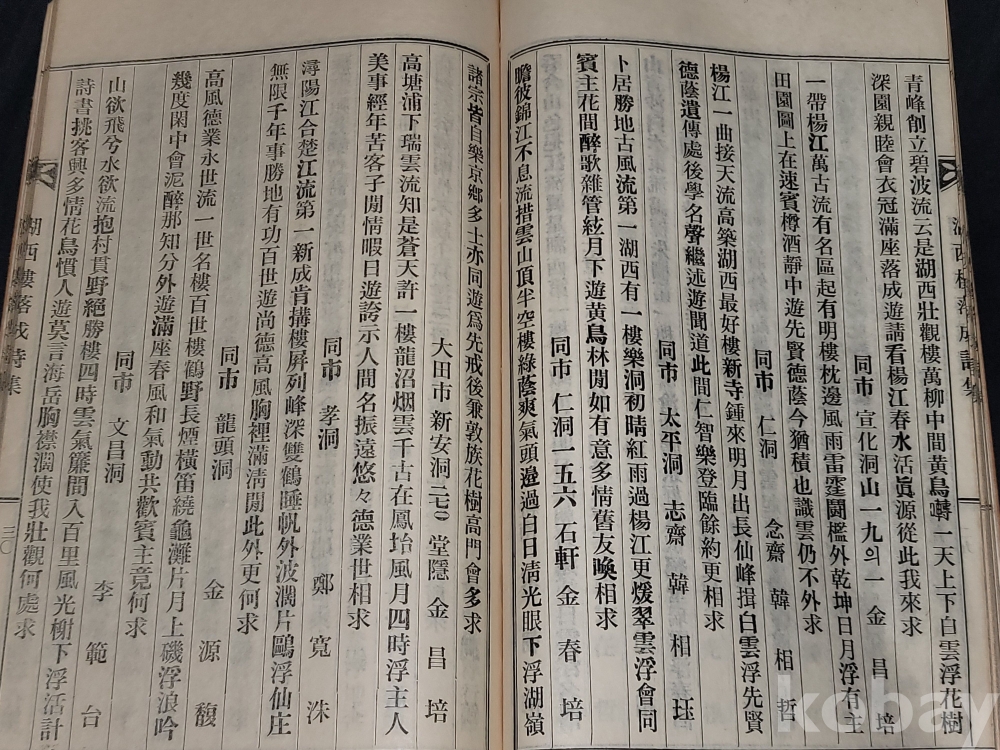 青峰創立碧波流云是湖西壯觀樓萬柳中間黃鳥囀一天上下白雲浮花樹
深園親睦會衣冠滿座落成遊請看楊江春水活眞源從此我來求
同市 宣化洞山一九의一 金昌培
一帶楊江萬古流有名區起有明樓枕邊風雨雷霆鬪檻外乾坤日月浮有主
田園圖上在速賓樽酒靜中遊先賢德蔭今猶積也識雲仍不外求
同市 仁洞 念齋 韓相哲
楊江一曲接天流高築湖西最好樓新寺鍾來明月出長仙峰揖白雲浮先賢
德蔭遺傳處後學名聲繼述遊聞道此間仁智樂登臨餘約更相求
同市 太平洞 志齋 韓相玨
卜居勝地古風流第一湖西有一樓樂洞初晴紅雨過楊江更煖翠雲浮會同
賓主花間醉歌雜管絃月下遊黃鳥林間如有意多情舊友喚相求
同市 仁洞一五六 石軒 金春培
瞻彼錦江不息流措雲山頂半空樓綠蔭爽氣頭邊過白日淸光眼下浮湖嶺
諸宗皆自樂京鄉多士亦同遊爲先戒後兼敦族花樹高門會多求
大田市 新安洞二七〇 堂隱 金昌培
高塘浦下瑞雲流知是蒼天許一樓龍沼烟雲千古在鳳坮風月四時浮主人
美事經年苦客子閒情暇日遊誇示人間名振遠悠々德業世相求
同市 孝洞 鄭寬洙
潯陽江合楚江流第一新成肯搆樓屛列峰深雙鶴睡帆外波濶片鷗浮仙庄
無限千年事勝地有功百世遊尚德高風胸裡滿淸閒此外更何求
同市 龍頭洞 金源馥
高風德業永世流一世名樓百世樓鶴野長煙橫笛繞龜灘片月上磯浮浪吟
幾度閑中會泥醉那知分外遊滿座春風和氣動共歡賓主竟何求
同市 文昌洞 李範台
山欲飛兮水欲流抱村貫野絕勝樓四時雲氣簾間入百里風光榭下浮活計
詩書挑客興多情花鳥慣人遊莫言海岳胸襟濶使我壯觀何處求
湖西樓落成詩集
三〇
kobay